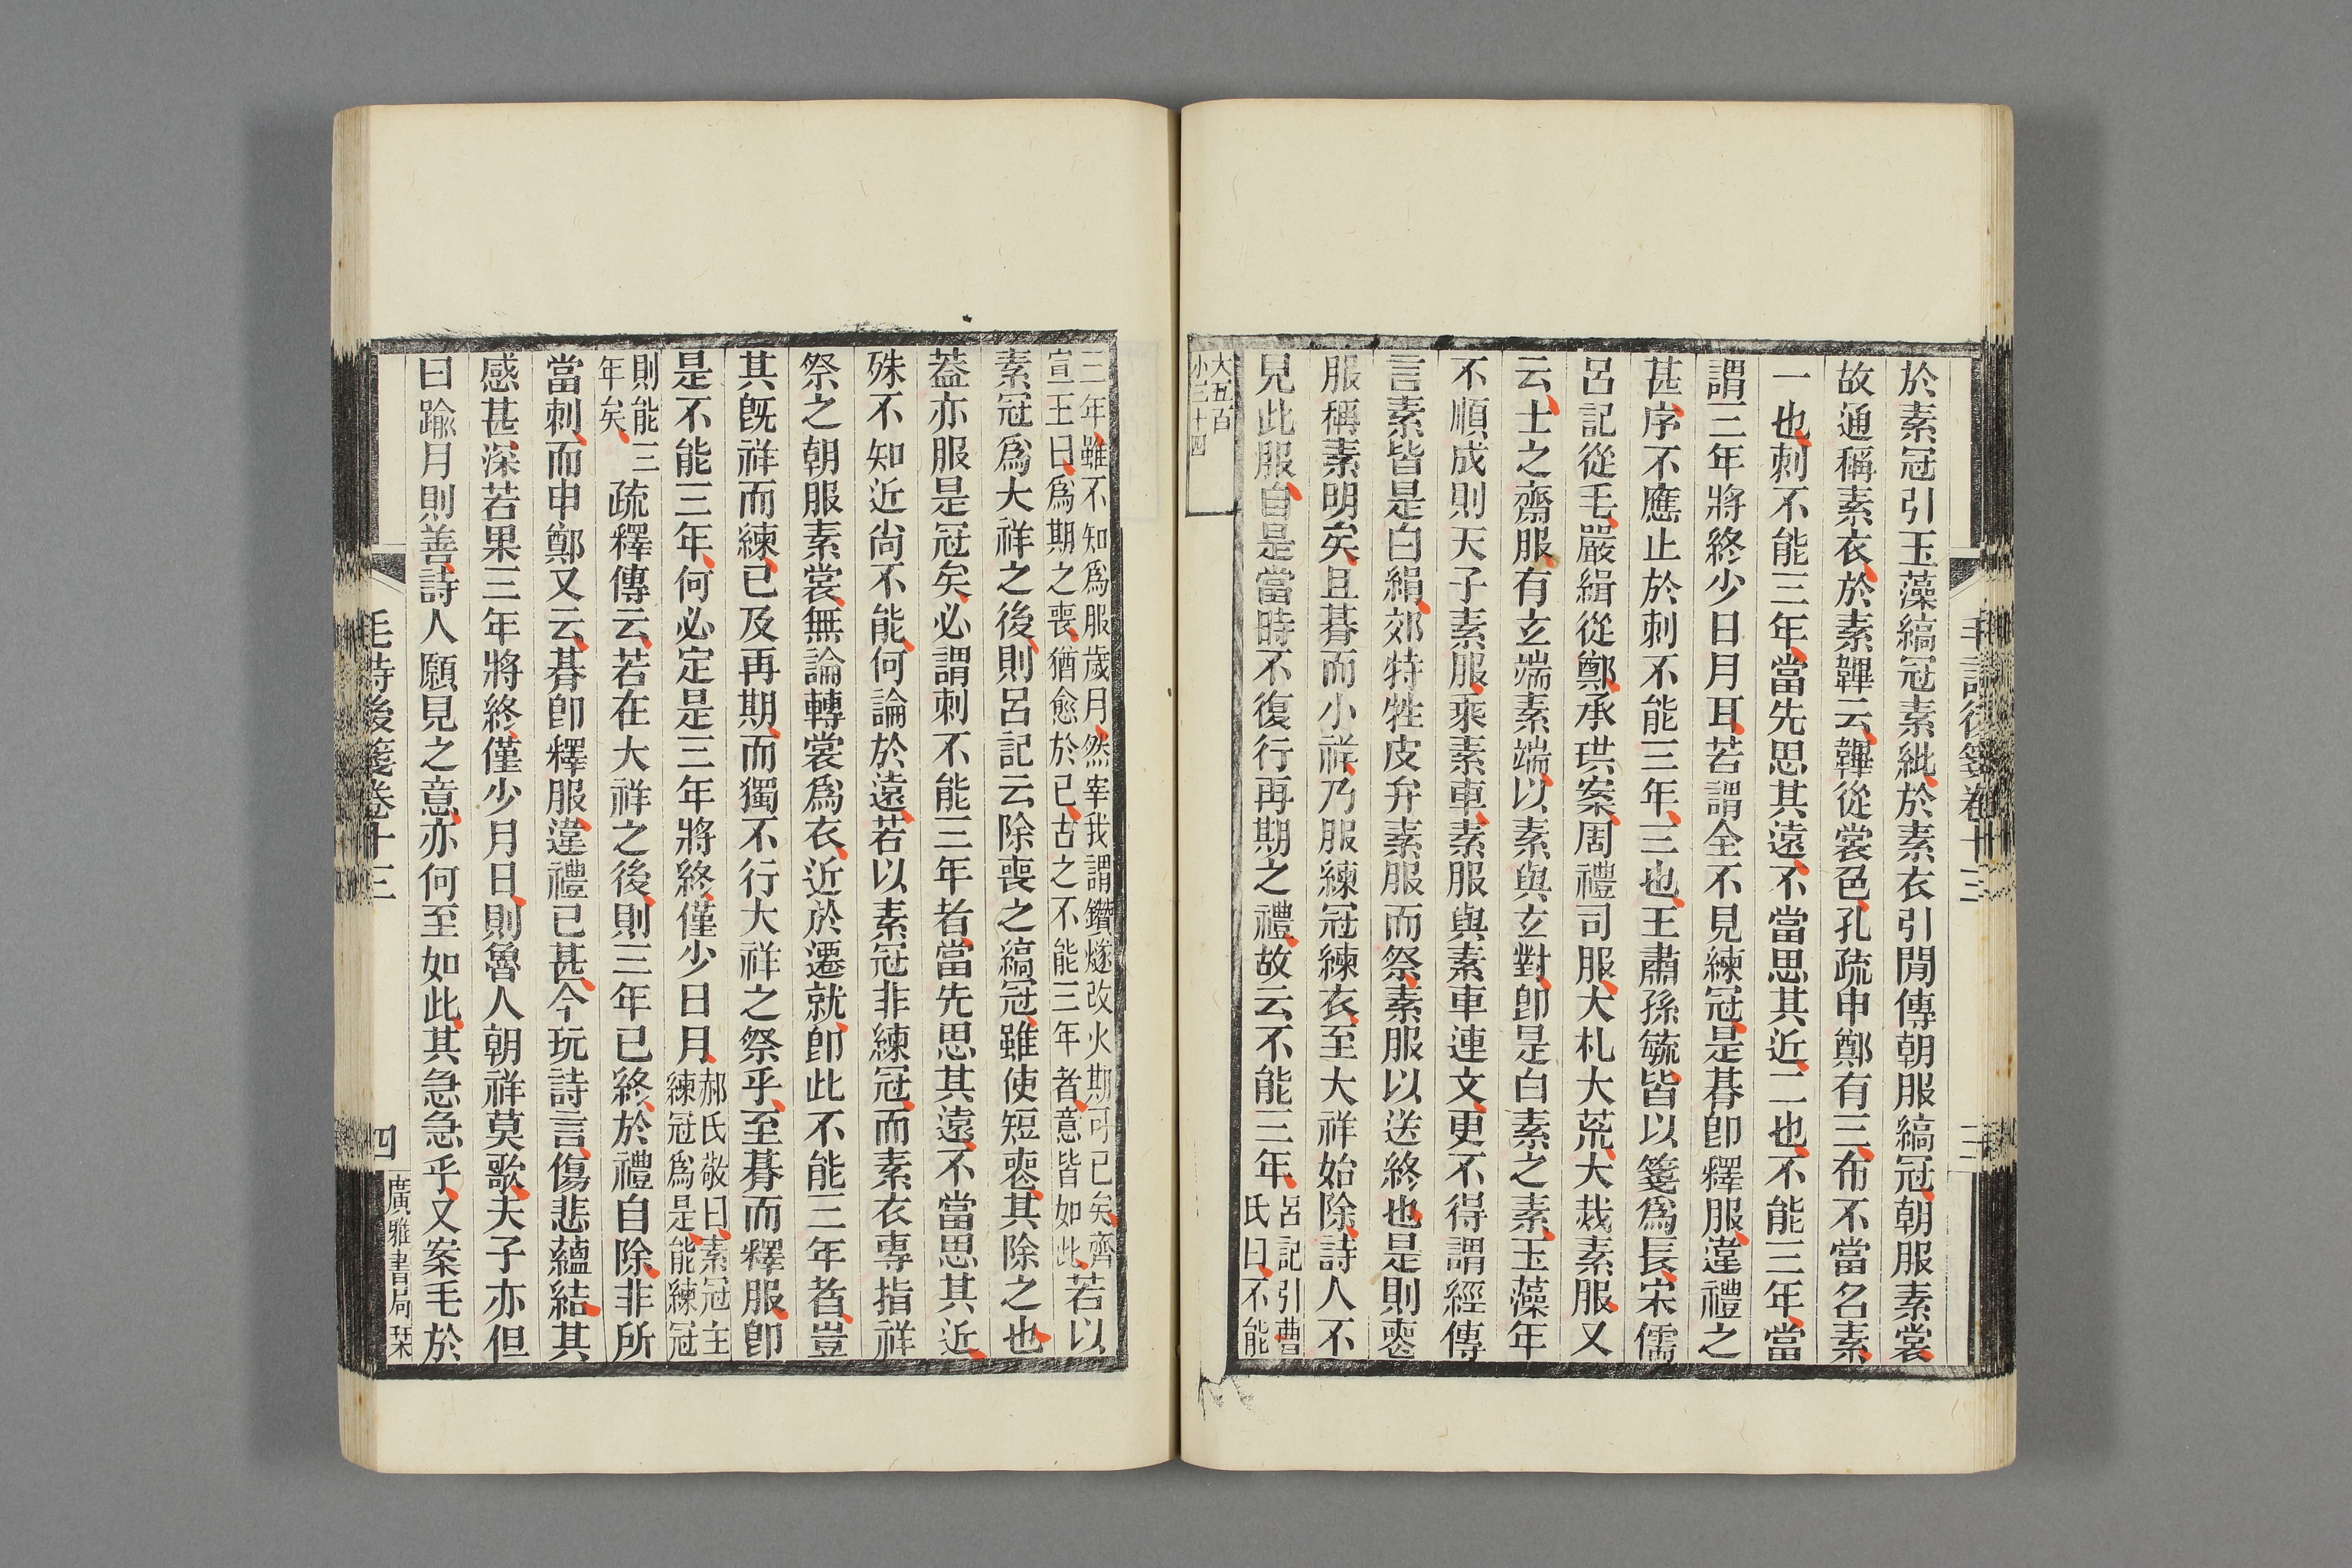 毛詩後箋卷十三
三
於素冠引玉藻縞冠素紕於素衣引閒傳朝服縞冠朝服素裳
故通稱素衣於素韠云韠從裳色孔疏申鄭有三布不當名素
一也刺不能三年當先思其遠不當思其近二也不能三年當
謂三年將終少日月耳若謂全不見練冠是朞卽釋服違禮之
甚序不應止於刺不能三年三也王肅孫毓皆以箋爲長宋儒
呂記從毛嚴緝從鄭承珙案周禮司服大札大荒大烖素服又
云士之齊服有玄端素端以素與玄對卽是白素之素玉藻年
不順成則天子素服乘素車素服與素車連文更不得謂經傳
言素皆是白絹郊特牲皮弁素服而祭素服以送終也是則喪
服稱素明矣且朞而小祥乃服練冠練衣至大祥始除詩人不
見此服自是當時不復行再期之禮故云不能三年
呂記引曹
氏曰不能
大五百
小三十四
三年雖不知爲服歲月然宰我謂鑽燧改火期可已矣齊
宣王曰爲期之喪猶愈於已古之不能三年者意皆如此
若以
素冠爲大祥之後則呂記云除喪之縞冠雖使短喪其除之也
蓋亦服是冠矣必謂刺不能三年者當先思其遠不當思其近
殊不知近尚不能何論於遠若以素冠非練冠而素衣專指祥
祭之朝服素裳無論轉裳爲衣近於遷就卽此不能三年者豈
其旣祥而練已及再期而獨不行大祥之祭乎至朞而釋服卽
是不能三年何必定是三年將終僅少日月
郝氏敬曰素冠主
練冠爲是能練冠
則能三
年矣
疏釋傳云若在大祥之後則三年已終於禮自除非所
當刺而申鄭又云朞卽釋服違禮已甚今玩詩言傷悲蘊結其
感甚深若果三年將終僅少月日則魯人朝祥莫歌夫子亦但
曰踰月則善詩人願見之意亦何至如此其急急乎又案毛於
毛詩後箋卷十三
四
廣雅書局栞